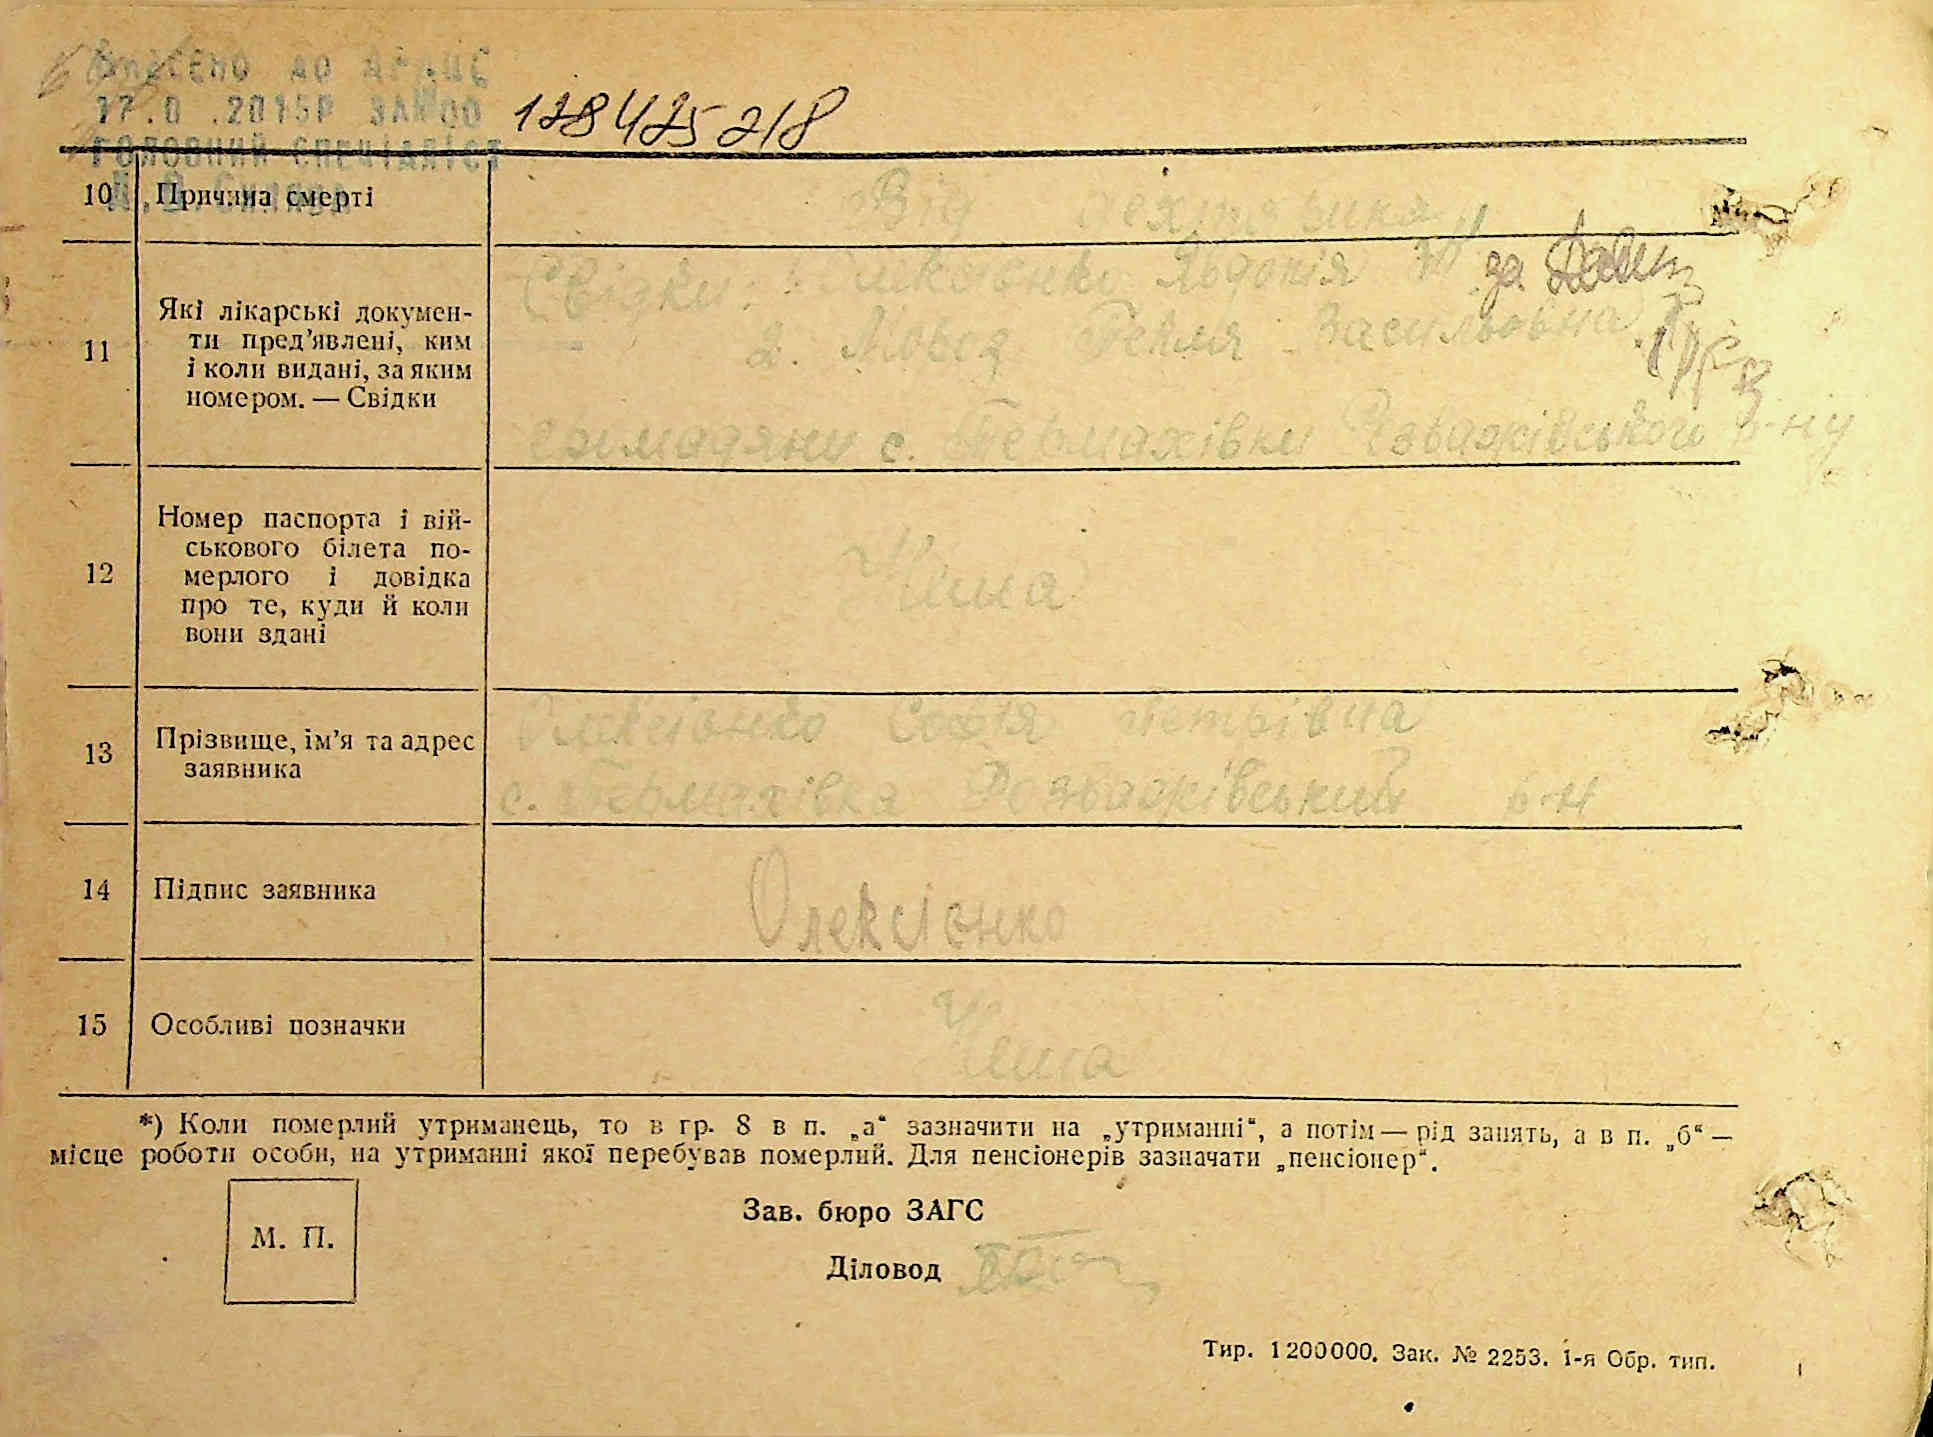 внесено до ДРАЦС
17.0 .2015р за №00
128425218
головний спеціаліст
10 Причина смерті
Від
11 Які лікарські докумен-
ти пред'явлені, ким
і коли видані, за яким
номером. — Свідки
Свідки: 1. Явдокія за
2. Текля Васильовна
громадяни с. Термахівки Розважівського р-ну
12 Номер паспорта і вій-
ськового білета по-
мерлого і довідка
про те, куди й коли
вони здані
Нема
13 Прізвище, ім'я та адрес
заявника
Олексієнко Софія Петрівна
с. Термахівка Розважівський р-н
14 Підпис заявника
Олексієнко
15 Особливі позначки
Нема
*) Коли померлий утриманець, то в гр. 8 в п. „а“ зазначити на „утриманні“, а потім — рід занять, а в п. „б“ —
місце роботи особи, на утриманні якої перебував померлий. Для пенсіонерів зазначати „пенсіонер“.
М. П.
Зав. бюро ЗАГС
Діловод
Тир. 1200000. Зак. № 2253. 1-я Обр. тип.